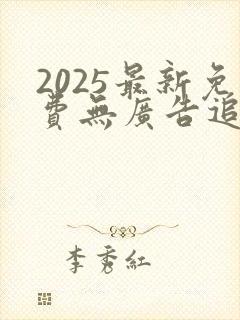 2025最新免
費無廣告追
李秀紅